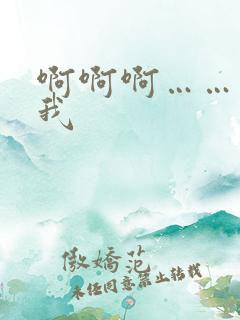 啊啊啊……
我
傲娇范
未经同意禁止转载